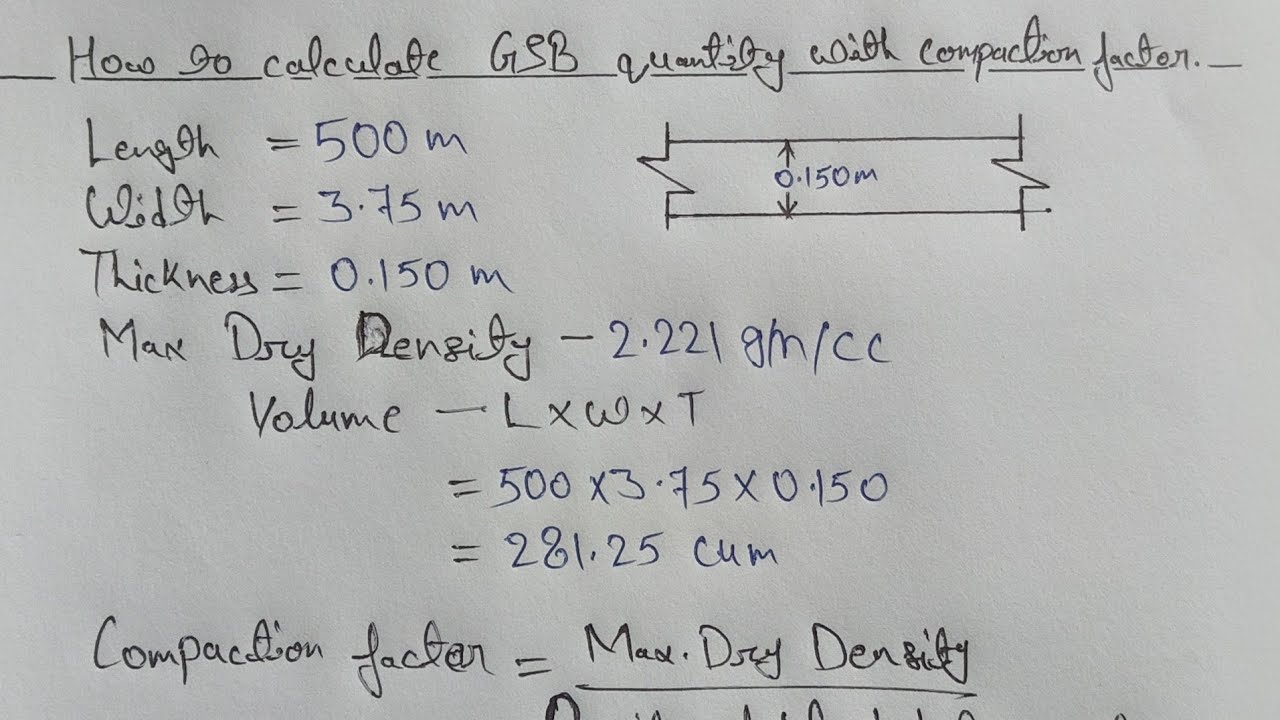 How to calculate GSB quantity with compaction factor.
Length = 500 m
0.150m
Width = 3.75 m
Thickness = 0.150 m
Max Dry Density - 2.221 gm/cc
Volume - L x W x T
= 500 x 3.75 x 0.150
= 281.25 cum
Compaction factor = Max. Dry Density